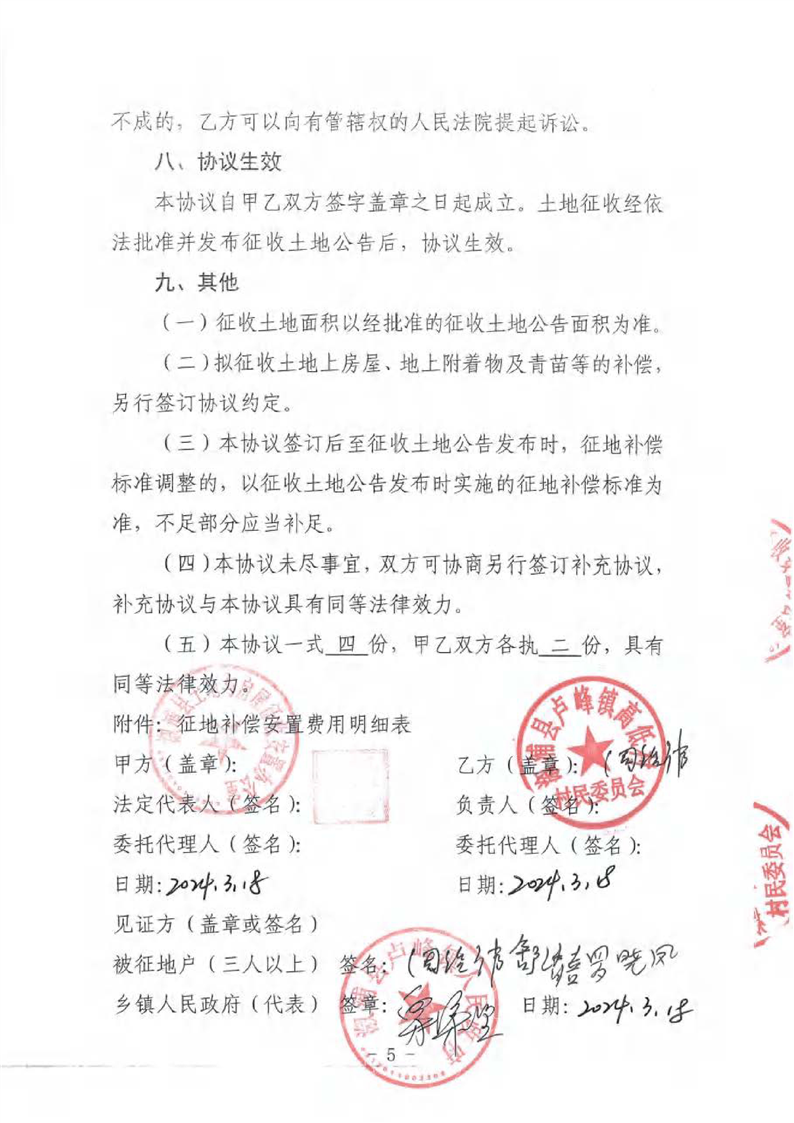 不成的，乙方可以向有管辖权的人民法院提起诉讼。
八、协议生效
本协议自甲乙双方签字盖章之日起成立。土地征收经依
法批准并发布征收土地公告后，协议生效。
九、其他
（一）征收土地面积以经批准的征收土地公告面积为准。
（二）拟征收土地上房屋、地上附着物及青苗等的补偿，
另行签订协议约定。
（三）本协议签订后至征收土地公告发布时，征地补偿
标准调整的，以征收土地公告发布时实施的征地补偿标准为
准，不足部分应当补足。
（四）本协议未尽事宜，双方可协商另行签订补充协议，
补充协议与本协议具有同等法律效力。
（五）本协议一式 四 份，甲乙双方各执 二 份，具有
同等法律效力。
附件：征地补偿安置费用明细表
甲方（盖章）：
乙方（盖章）：
溆浦县卢峰镇高低村
村民委员会
法定代表人（签名）：
负责人（签名）：
委托代理人（签名）：
委托代理人（签名）：
日期：2024.3.18
日期：2024.3.18
见证方（盖章或签名）
被征地户（三人以上） 签名：
罗晓凤
乡镇人民政府（代表） 签章：
日期：2024.3.18
溆浦县卢峰镇人民政府
- 5 -
村民委员会